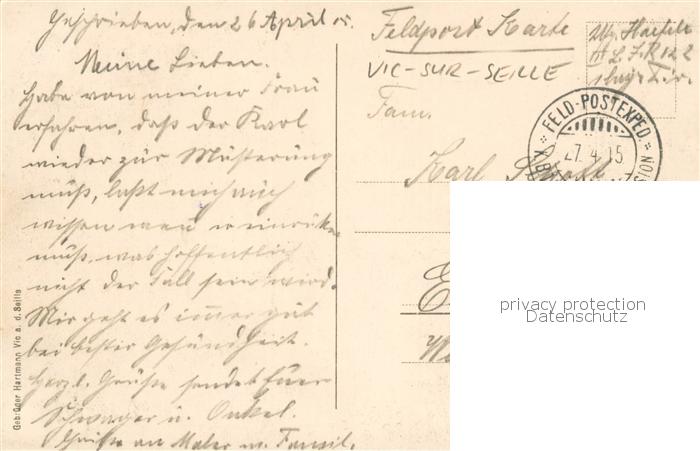 Geschrieben, den 26 April 15.
Meine Lieben.
Habe von meiner Frau
erfahren, daß der Karl
wieder zur Musterung
muß, laßt mich auch
wissen wan er einrücken
muß, was hoffentlich
nicht der Fall sein wird.
Mir geht es immer gut
bei bester Gesundheit.
Herzl. Grüße sendet Euer
Schwager u. Onkel.
Grüße an Maler u. Famil.
Gebrüder Hartmann Vic a. d. Seille
Feldpost Karte
VIC-SUR-SEILLE
L. J. R 122
Fam.
Karl
FELD-POSTEXPED
27.4.15
privacy protection
Datenschutz